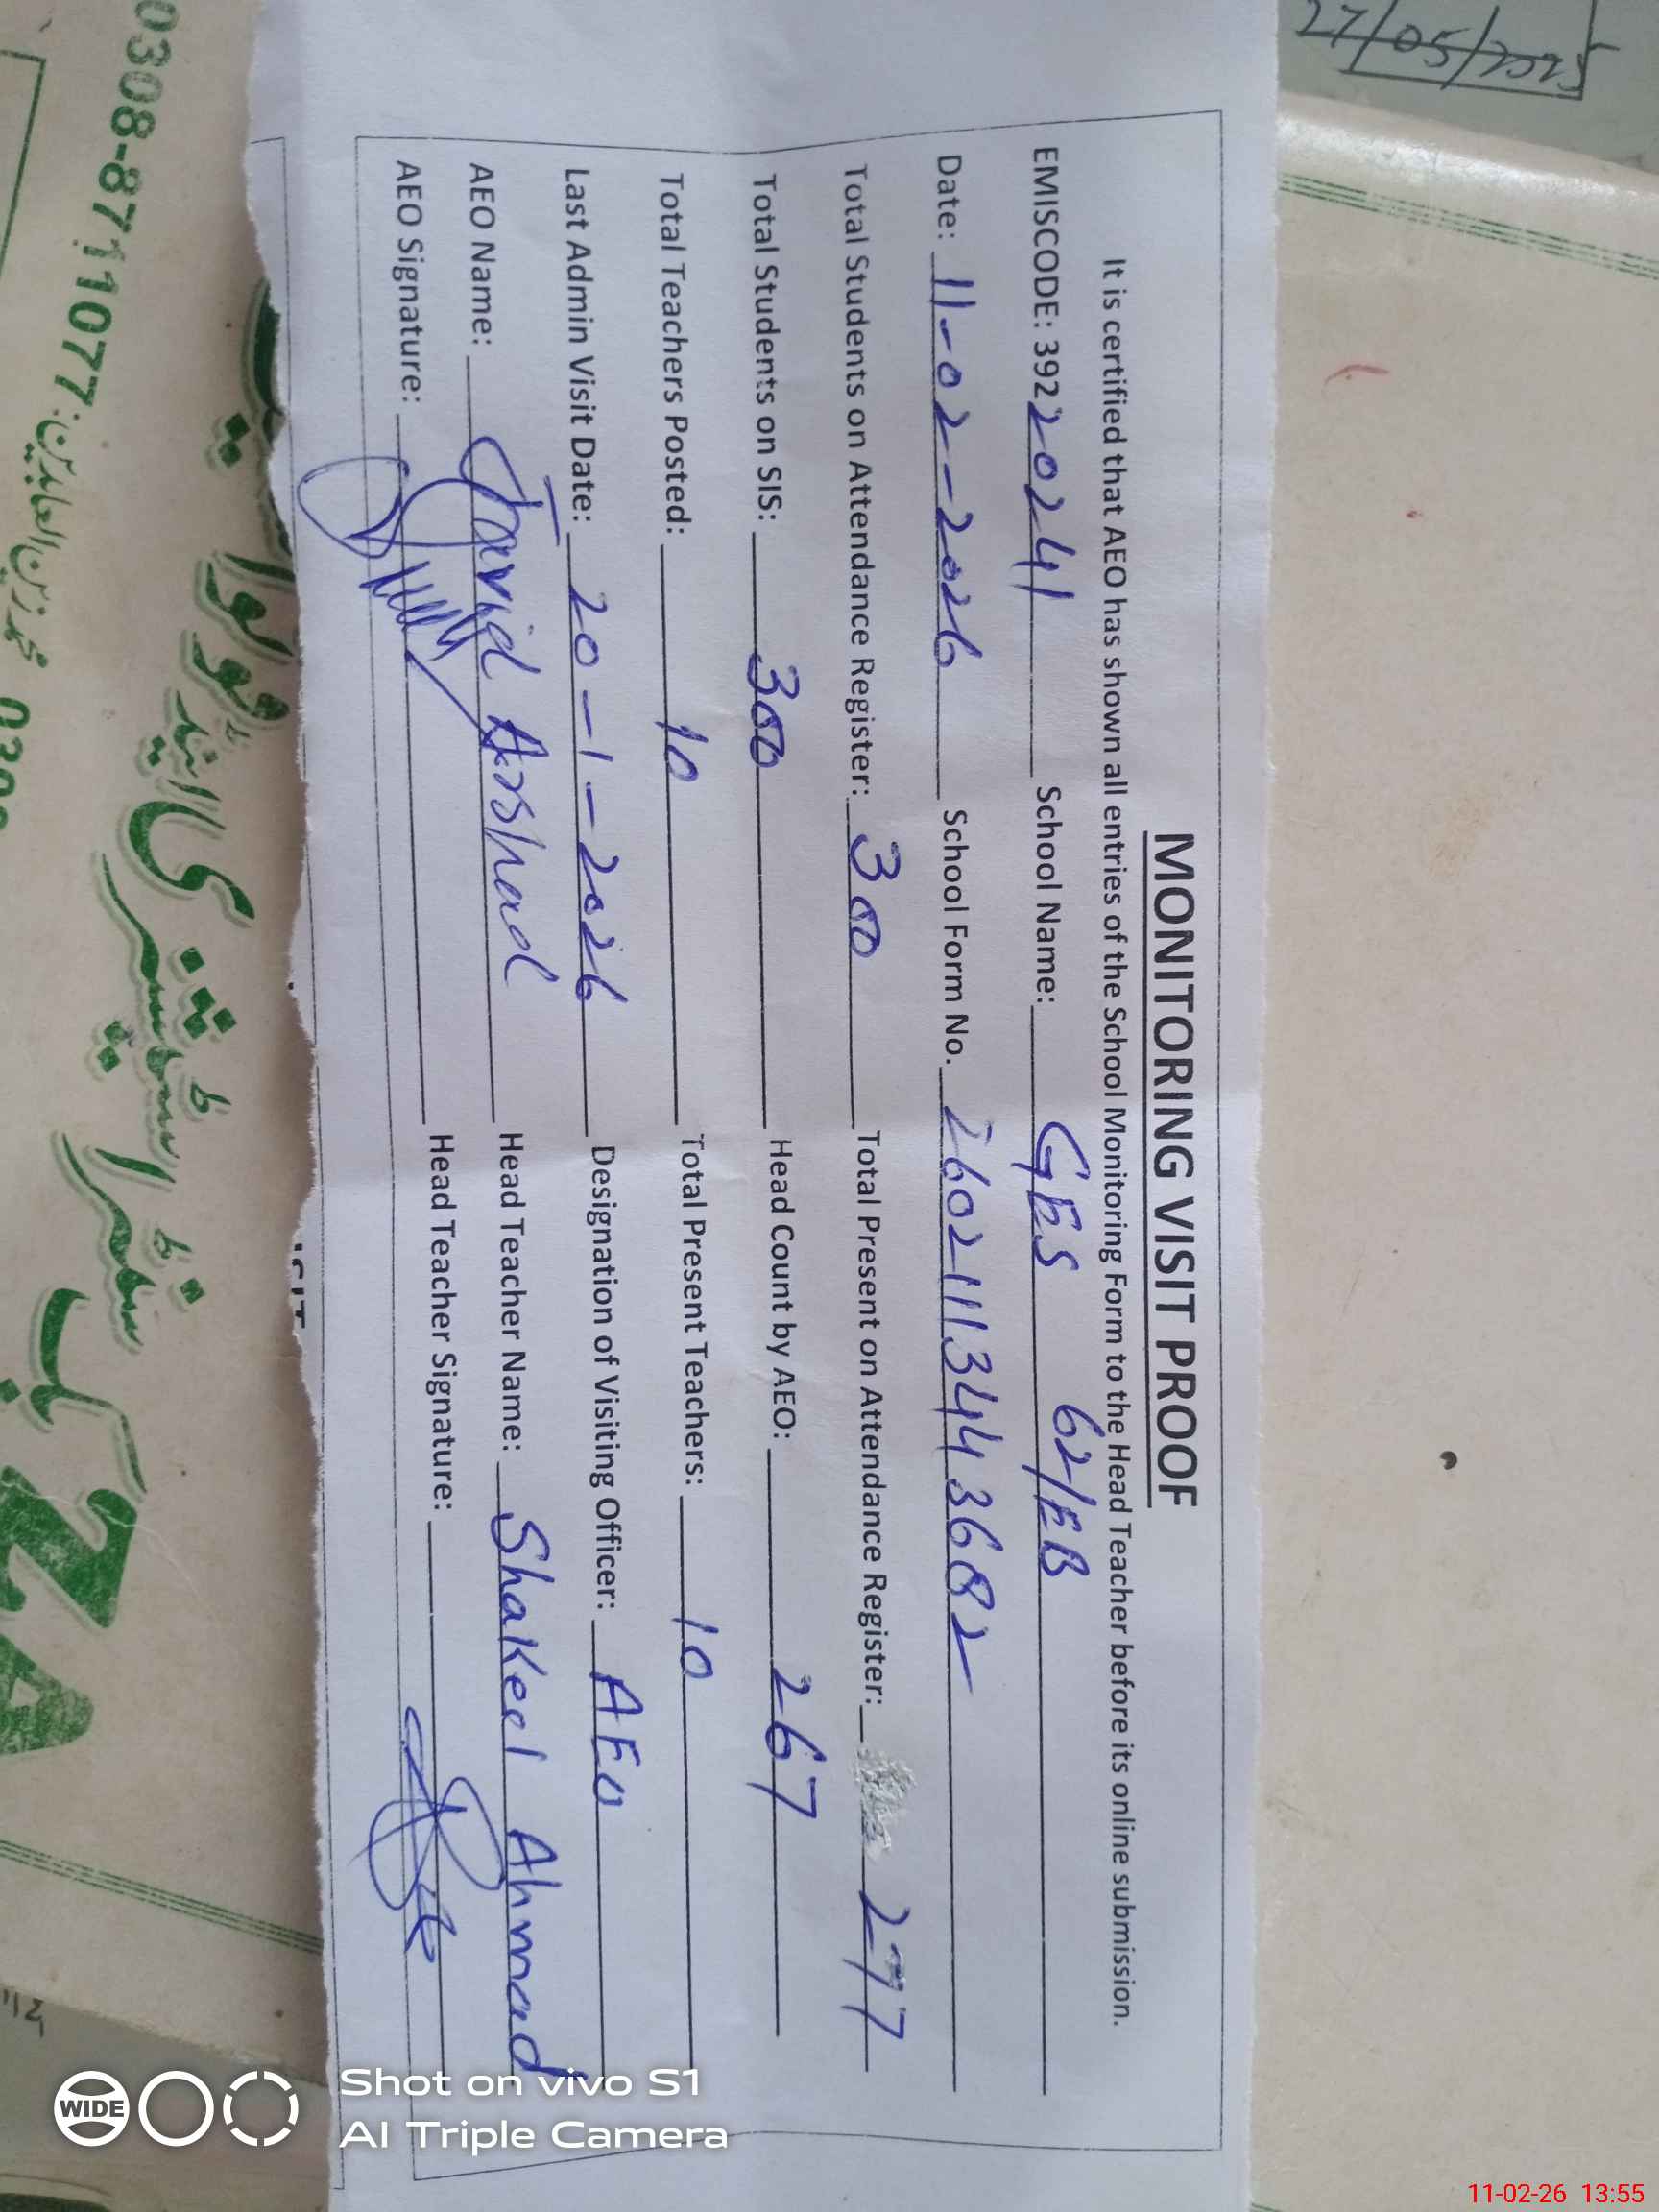 MONITORING VISIT PROOF
It is certified that AEO has shown all entries of the School Monitoring Form to the Head Teacher before its online submission.
EMISCODE: 39220241 School Name: GES 62/EB
Date: 11-02-2026 School Form No. 2602111344 3682
Total Students on Attendance Register: 300 Total Present on Attendance Register: 277
Total Students on SIS: 300 Head Count by AEO: 267
Total Teachers Posted: 10 Total Present Teachers: 10
Last Admin Visit Date: 20-1-2026 Designation of Visiting Officer: AEO
AEO Name: Javid Arshad Head Teacher Name: Shakeel Ahmad
AEO Signature: Head Teacher Signature:
27/05/2025
0308-8711077
ZA
WIDE
Shot on vivo S1
AI Triple Camera
11-02-26 13:55